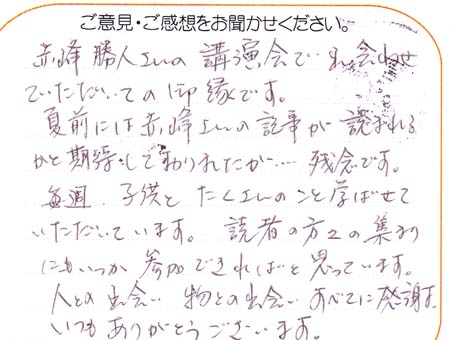 ご意見・ご感想をお聞かせください。
赤峰 勝人さんの 講演会で お会わせ
ていただいての御縁です。
夏前には赤峰さんの記事が 読まれる
かと期待しておりましたが…… 残念です。
毎週、子供と たくさんのこと学ばせて
いただいています。 読者の方々の集まり
にもいつか 参加できればと思っています。
人との出会い 物との出会い すべてに感謝す。
いつも ありがとうございます。